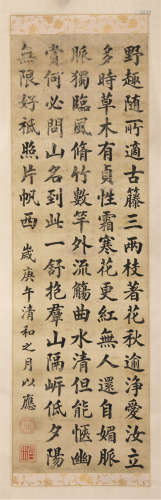 野趣随所適古籐三兩枝著花秋逾淨愛汝立
多時草木有貞性霜寒花更紅無人還自媚脈
脈獨臨風脩竹數竿外流觴曲水清但能愜幽
賞何必問山名到此一舒抱羣山隔岍低夕陽
無限好祗照片帆西
歲庚午清和之月以應